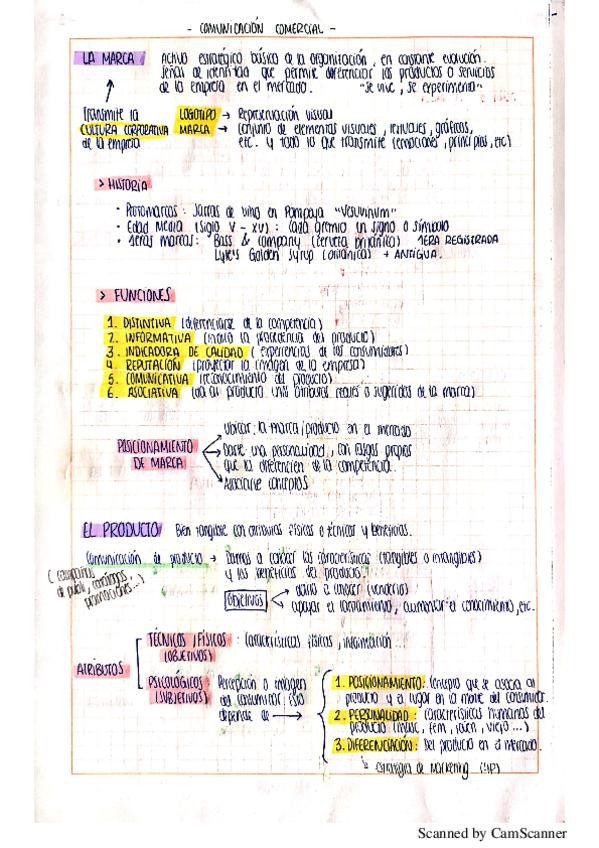 - COMUNICACIÓN COMERCIAL -
LA MARCA
Activo estratégico básico de la organización, en constante evolución.
Señas de identidad que permite diferenciar los productos o servicios
de la empresa en el mercado. "Se vive, se experimenta"
Transmite la
CULTURA CORPORATIVA
de la empresa
LOGOTIPO → Representación visual
MARCA → Conjunto de elementos visuales, textuales, gráficos,
etc. y todo lo que transmite (emociones, principios, etc)
> HISTORIA
· Protomarcas: Jarras de vino en Pompeya "Vesuvinum"
· Edad Media (Siglo V - XV): cada gremio un signo o símbolo
· 1eras marcas: Bass & Company (cerveza británica) 1ERA REGISTRADA
Lyle's Golden Syrup (británicos) + ANTIGUA.
> FUNCIONES
1. DISTINTIVA (diferenciarse de la competencia)
2. INFORMATIVA (indica la procedencia del producto)
3. INDICADORA DE CALIDAD (experiencias de los consumidores)
4. REPUTACIÓN (proyectar la imagen de la empresa)
5. COMUNICATIVA (reconocimiento del producto)
6. ASOCIATIVA (da al producto unos atributos reales o sugeridos de la marca)
POSICIONAMIENTO
DE MARCA
Ubicar la marca/producto en el mercado
Darle una personalidad, con rasgos propios
que la diferencien de la competencia.
Asociarle conceptos
EL PRODUCTO Bien tangible con atributos físicos o técnicos y beneficios.
Comunicación de producto → Damos a conocer las características (tangibles o intangibles)
y los beneficios del producto.
(campañas
de publi, catálogos
promociones...)
OBJETIVOS
darlo a conocer (venderlo)
apoyar el lanzamiento, aumentar el conocimiento, etc.
ATRIBUTOS
TÉCNICOS/FÍSICOS : Características físicas, información...
(OBJETIVOS)
PSICOLÓGICOS : Percepción o imagen
(SUBJETIVOS) del consumidor. Esto
depende de →
1. POSICIONAMIENTO: Concepto que se asocia al
producto y a lugar en la mente del consumidor.
2. PERSONALIDAD: características humanas del
producto (masc, fem, joven, viejo...)
3. DIFERENCIACIÓN: Del producto en el mercado.
Estrategia de Marketing (4P)
Scanned by CamScanner